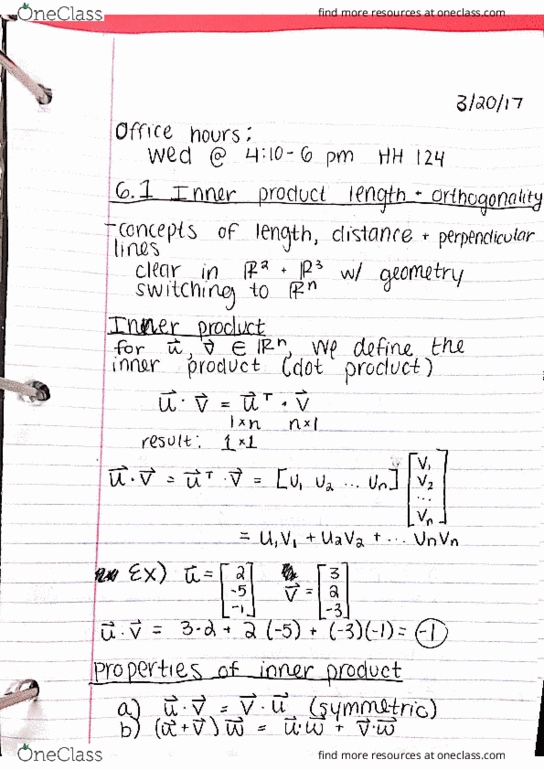 OneClass
find more resources at oneclass.com
3/20/17
Office hours:
Wed @ 4:10-6 pm HH 124
6.1 Inner product length + orthogonality
-concepts of length, distance + perpendicular
lines
clear in ℝ² + ℝ³ w/ geometry
switching to ℝⁿ
Inner product
for u⃗, v⃗ ∈ ℝⁿ, we define the
inner product (dot product)
u⃗ · v⃗ = u⃗ᵀ · v⃗
1×n n×1
result: 1×1
u⃗ · v⃗ = u⃗ᵀ · v⃗ = [u₁ u₂ ... uₙ] [v₁ v₂ ... vₙ]
= u₁v₁ + u₂v₂ + ... uₙvₙ
Ex) u⃗ = [2 -5 -1] v⃗ = [3 2 -3]
u⃗ · v⃗ = 3·2 + 2(-5) + (-3)(-1) = -1
properties of inner product
a) u⃗ · v⃗ = v⃗ · u⃗ (symmetric)
b) (u⃗+v⃗) w⃗ = u⃗·w⃗ + v⃗·w⃗
OneClass
find more resources at oneclass.com